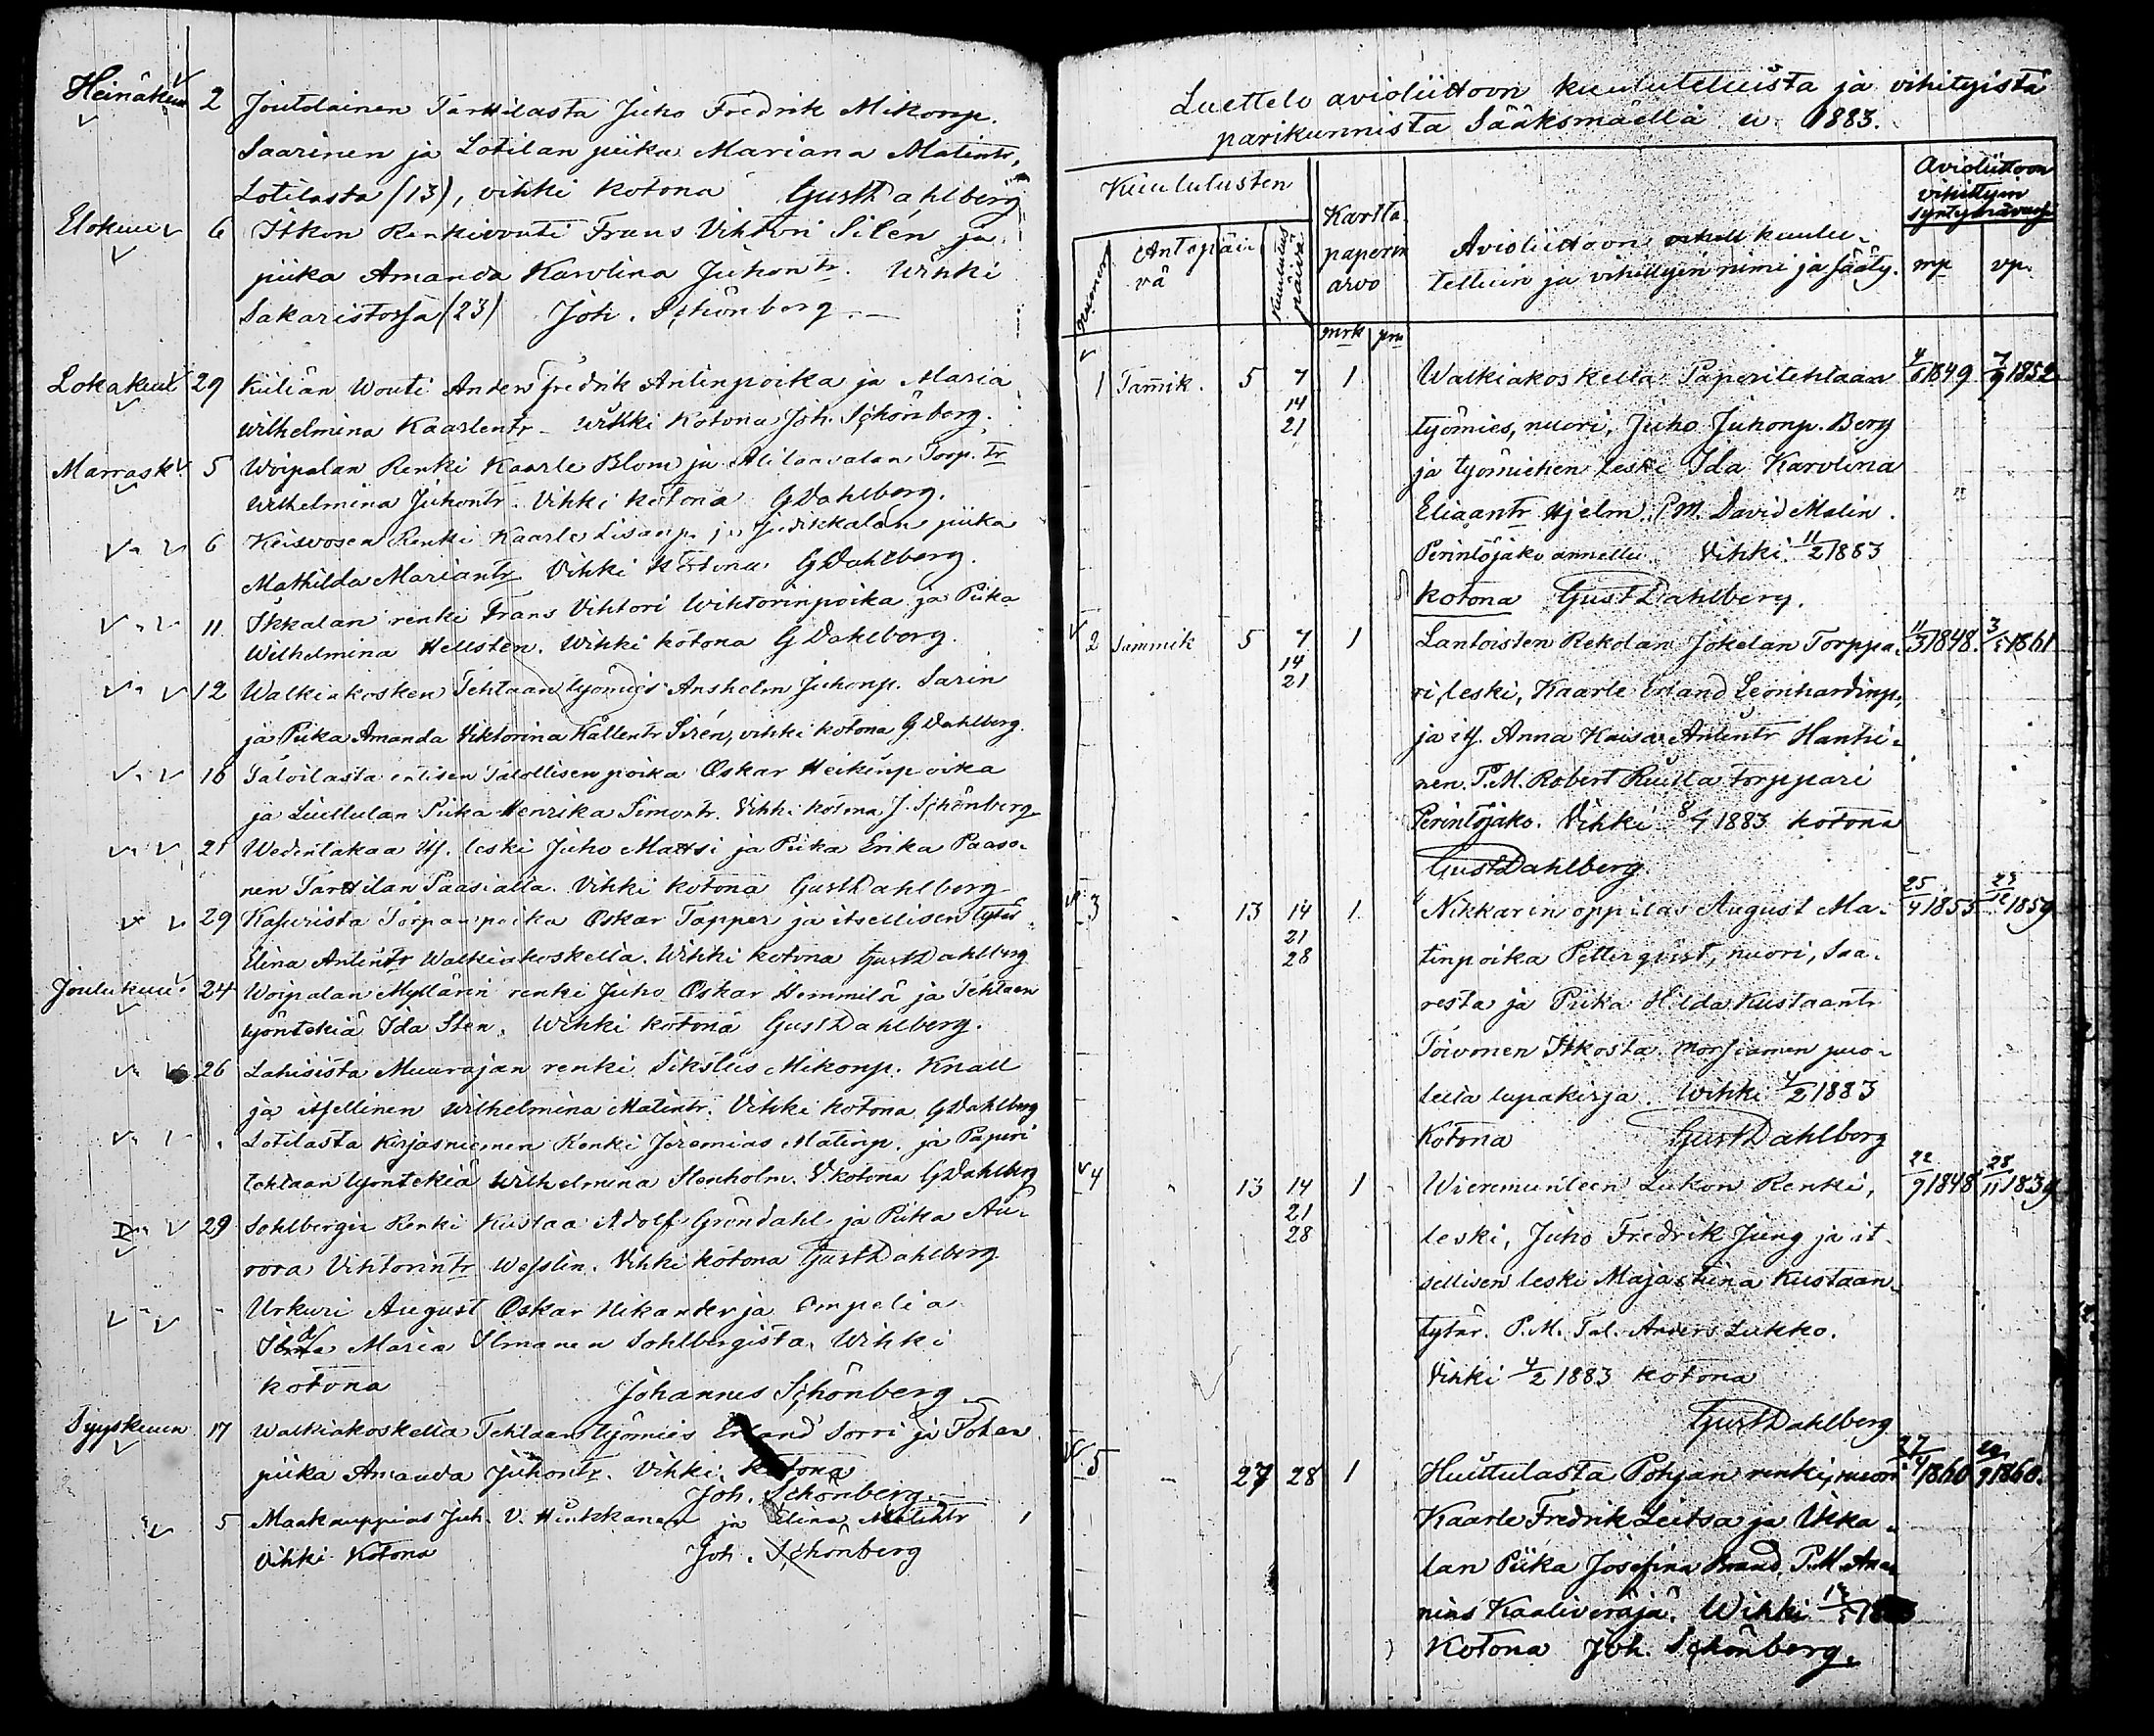 Heinäkuu 2 Joutolainen Tarttilasta Juho Fredrik Mikonp.
Saarinen ja Lotilan piika Mariana Matintr,
Lotilasta (13), vihki kotona Gust Dahlberg
Elokuu 6 Itkon Renkivouti Frans Vihtori Silén ja
piika Amanda Karolina Juhontr. Vihki
Sakaristossa (23) Joh. Schönberg
Lokakuu 29 Wouti Anders Fredrik Antinpoika ja Maria
Wilhelmina Kaarlentr. Vihki kotona Joh. Schönberg.
Marrask. 5 Woipalan Renki Kaarle Blom ja Torp. tr
Wilhelmina Juhontr. Vihki kotona GDahlberg.
6 Renki Kaarle Lisanp. ja piika
Mathilda Mariantr Vihki kotona GDahlberg.
11 Ikkalan renki Frans Vihtori Wihtorinpoika ja Piika
Wilhelmina Hellsten. Wihki kotona GDahlberg.
12 Walkiakosken Tehtaan työmies Anshelm Juhonp. Sarin
ja Piika Amanda Viktorina Kallentr Sirén, vihki kotona GDahlberg.
16 entisen Talollisen poika Oskar Heikinpoika
ja Piika Henrika Simontr. Vihki kotona J. Schönberg
21 Wedentakaa itj. leski Juho Mattsi ja Piika Erika Paaso-
nen Tarttilan Paasialla. Vihki kotona Gust Dahlberg
29 Torpanpoika Oskar Tapper ja itsellisen tytär
Elina Antintr Walkiakoskella. Wihki kotona Gust Dahlberg
Joulukuu 24 Woipalan Myllärin renki Juho Oskar Hemmilä ja Tehtaan
työntekiä Ida Sten. Wihki kotona Gust Dahlberg.
26 Lahisista Muurajan renki Sikstus Mikonp. Knall
ja itsellinen Wilhelmina Matintr. Vihki kotona GDahlberg
Lotilasta Kirjasniemen Renki Jeremias Matinp. ja Paperi
tehtaan työntekiä Wilhelmina Stenholm. V. kotona GDahlberg
29 Sohlbergin Renki Kustaa Adolf Gröndahl ja Piika Au-
rora Vihtorintr Wesslin. Vihki kotona Gust Dahlberg
Urkuri August Oskar Nikander ja
Maria Ilmanen Sohlbergista. Wihki
kotona Johannes Schönberg
Syyskuun 17 Walkiakoskella Tehtaan työmies Erland Sorri ja
piika Amanda Juhontr. Vihki kotona
Joh. Schönberg.
5 Maakauppias Juh. V. Hinkkanen ja Elina Matintr 1
Vihki Kotona Joh. Schönberg
Luettelo avioliittoon kuulutetuista ja vihityistä
parikunnista Sääksmäellä v. 1883.
Kuulutusten
Numero
Antopäi-
vä
Kuulutus
päivä
Kartta
paperin
arvo
mrk pni
Avioliittoon kuulu-
tettuin ja vihittyin nimi ja sääty.
Avioliittoon
vihittyin
syntymävuosi
mp vp.
1 Tammik. 5 7 1 Walkiakoskella Paperitehtaan 1849 7/9 1852
14
21 työmies, nuori, Juho Juhonp. Berg
ja työmiehen leski Ida Karolina
Eliaantr Hjelm. P.M. David Malin.
Perintöjako annettu. Vihki 11/2 1883
kotona Gust Dahlberg.
2 Tammik 5 7 1 Lantoisten Rekolan Jokelan Torppa- 11/3 1848. 1861
14
21 ri, leski, Kaarle Erland Leonhardinp.
ja itj. Anna Kaisa Antintr Hanhi-
nen. P.M. Robert Ruusta torppari
Perintöjako. Vihki 8/4 1883 kotona
Gust Dahlberg.
3 13 14 1 Nikkarin oppilas August Ma- 25/4 1855 23/12 1859
21
28 tinpoika Petterqvist, nuori, Saa-
resta ja Piika Hilda Kustaantr
Toivonen Itkosta. morsiamen puo-
lella lupakirja. Wihki 4/2 1883
Kotona Gust Dahlberg
4 13 14 1 Lukon Renki, 22/9 1848 28/11 1839
21
28 leski, Juho Fredrik Jung ja it-
sellisen leski Majastiina Kustaan-
tytär. P.M. Tal. Anders Lukko.
Vihki 4/2 1883 kotona
Gust Dahlberg
5 27 28 1 Huittulasta Pohjan renki, nuori 27/4 1860 1860.
Kaarle Fredrik Leitsa ja Ikka-
lan Piika Josefina Brand. P.M. Ana-
nias Kaaliveräjä. Wihki
Kotona Joh. Schönberg.